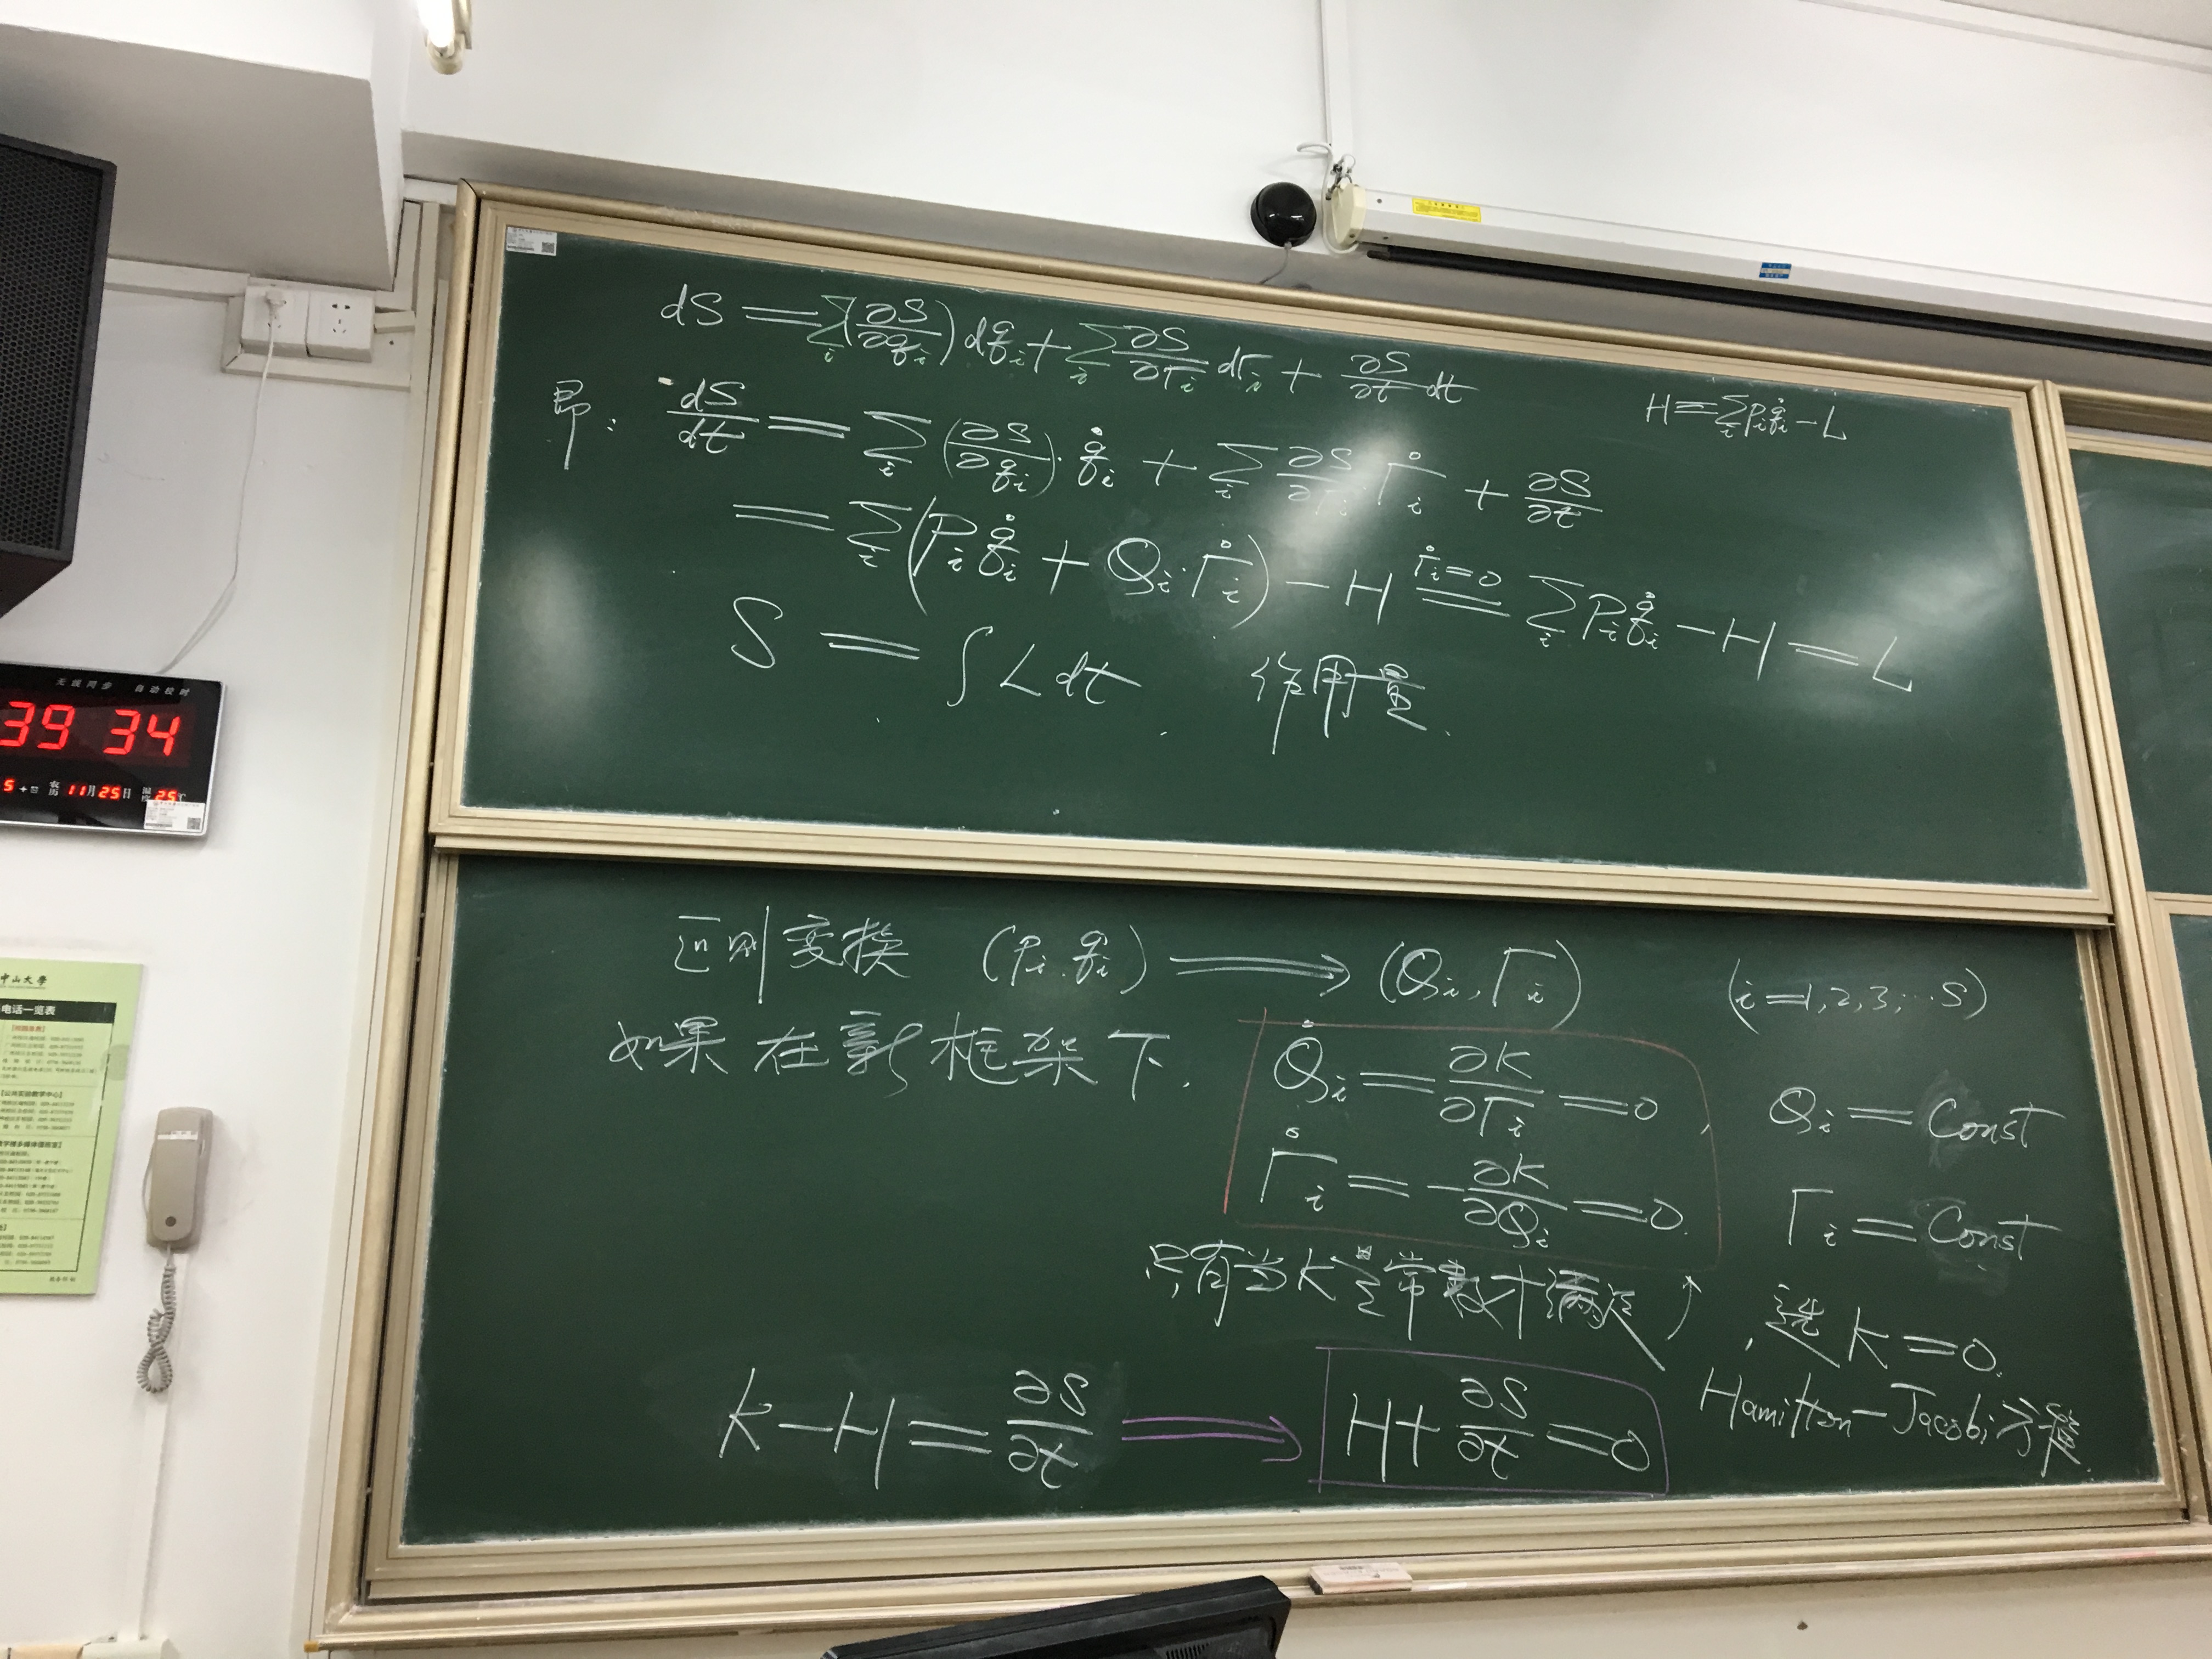 dS = ∑_i (∂S/∂q_i) dq_i + ∑_i ∂S/∂Γ_i dΓ_i + ∂S/∂t dt
H = ∑_i p_i q̇_i − L
即: dS/dt = ∑_i (∂S/∂q_i)·q̇_i + ∑_i ∂S/∂Γ_i Γ̇_i + ∂S/∂t
= ∑_i (P_i q̇_i + Q_i·Γ̇_i) − H =(Γ̇_i=0)= ∑_i P_i q̇_i − H = L
S = ∫ L dt. 作用量.
正则变换 (p_i, q_i) ⟹ (Q_i, Γ_i) (i=1,2,3,…S)
如果在新框架下.
Q̇_i = ∂K/∂Γ_i = 0 Q_i = Const
Γ̇_i = −∂K/∂Q_i = 0. Γ_i = Const
只有当K是常数才满足↑, 选K=0.
K−H = ∂S/∂t ⟹ H + ∂S/∂t = 0 Hamilton-Jacobi方程.
无线同步 自动校时
39 34
5 农历 11月25日 温度 25℃
中山大学
电话一览表